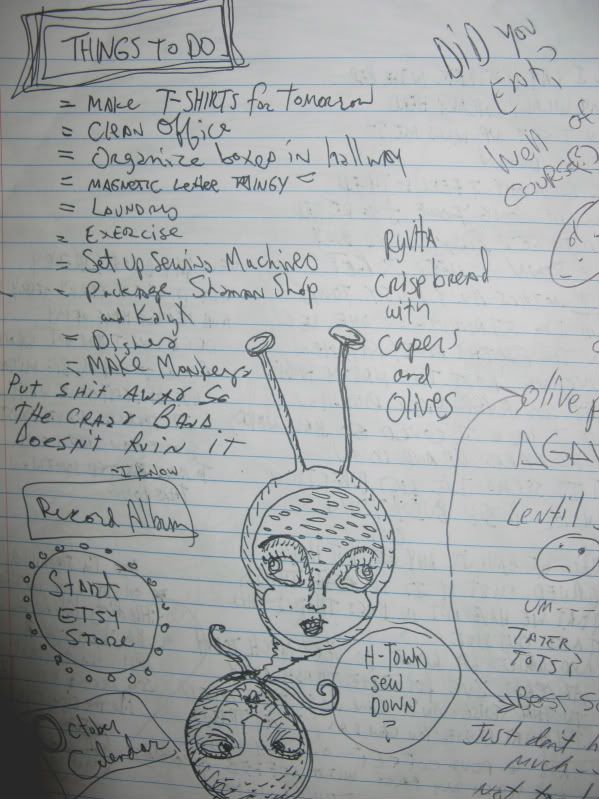 THINGS TO DO
= MAKE T-SHIRTS for Tomorrow
= CLEAN Office
= Organize boxes in hallway
= MAGNETIC Letter THINGY =
= LAUNDRY
= EXERCISE
= Set up Sewing Machines
= Package Shaman Shop
and Kalyx
= Dishes
= MAKE Monkeys
Put SHIT AWAY SO
THE CRAZY BAND
DOESN'T RUIN IT
I KNOW
Record Album
START
ETSY
STORE
October
Calendar
DID you
EAT?
Well of
COURSE?
RYVITA
Crispbread
with
CAPERS
and
OLIVES
Olive
AGAI
Lentil
UM---
TATER
TOTS?
BEST
Just don't
much--
Not to
H-TOWN
SEW
DOWN
?